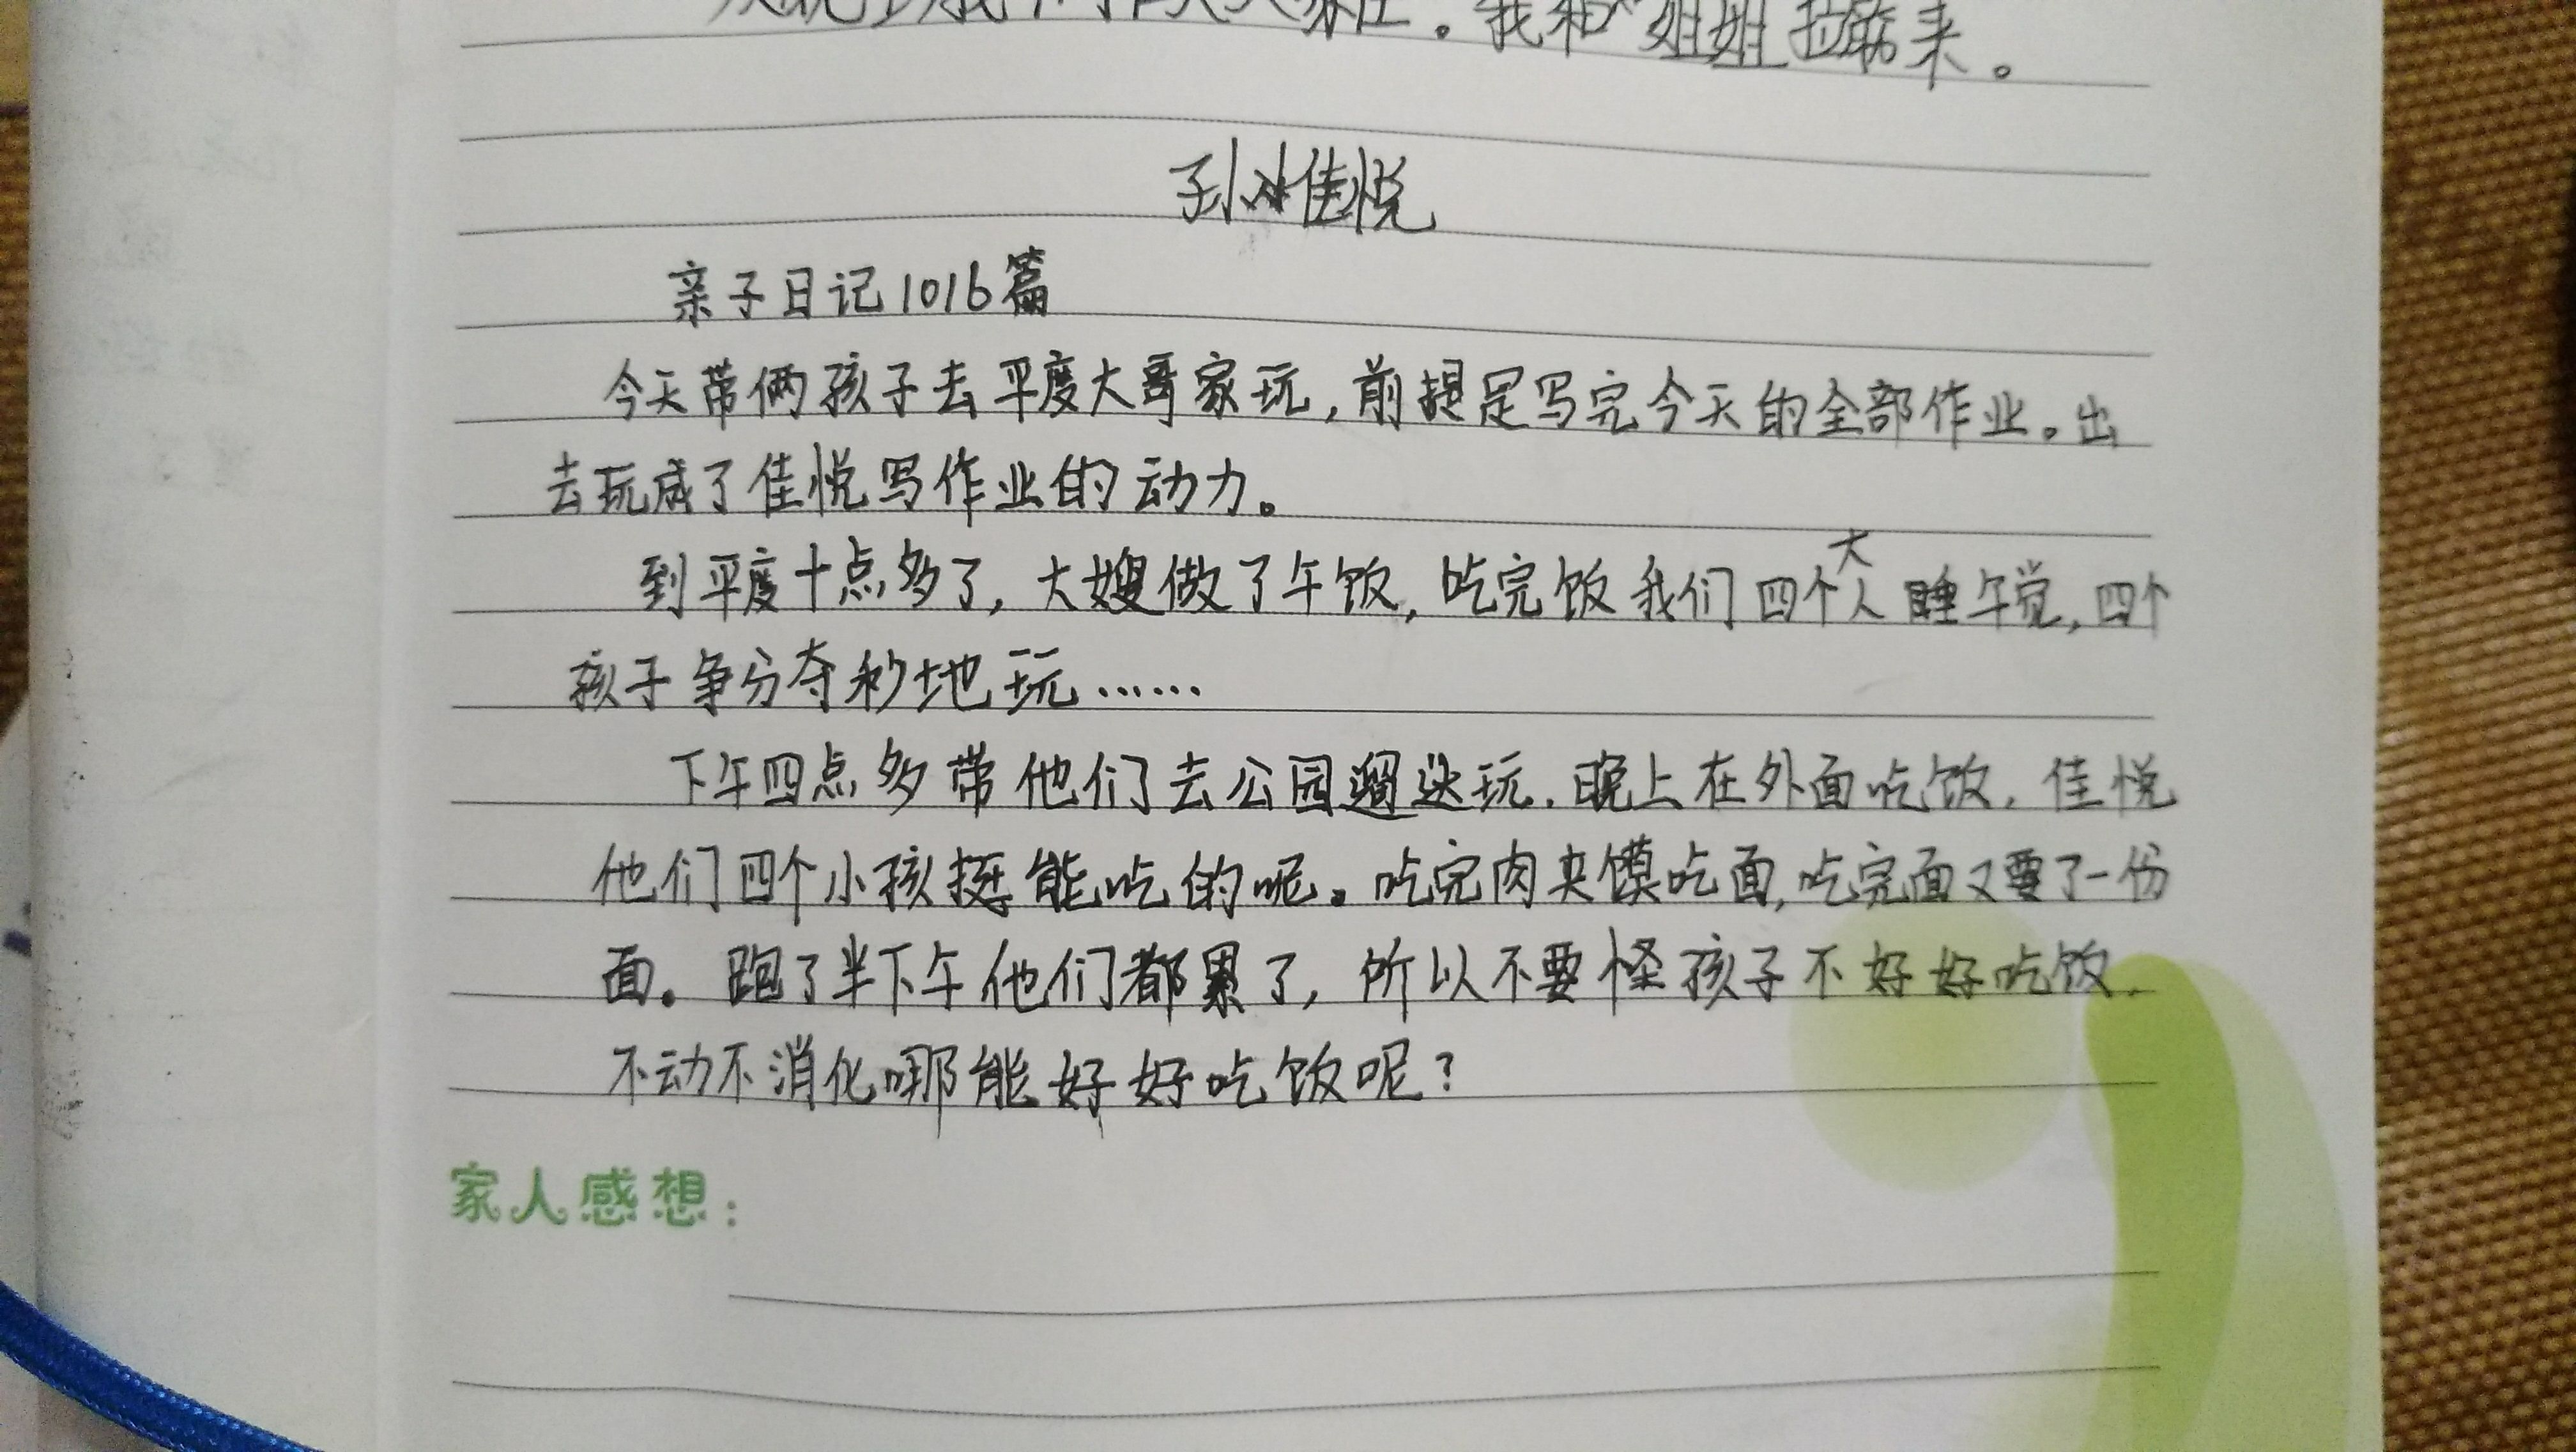 我和姐姐拉筋来。
孙佳悦
亲子日记1016篇
今天带俩孩子去平度大哥家玩,前提是写完今天的全部作业。出
去玩成了佳悦写作业的动力。
到平度十点多了,大嫂做了午饭,吃完饭我们四个大人睡午觉,四个
孩子争分夺秒地玩……
下午四点多带他们去公园遛达玩.晚上在外面吃饭.佳悦
他们四个小孩挺能吃的呢。吃完肉夹馍吃面,吃完面又要了一份
面。跑了半下午他们都累了,所以不要怪孩子不好好吃饭.
不动不消化哪能好好吃饭呢?
家人感想: